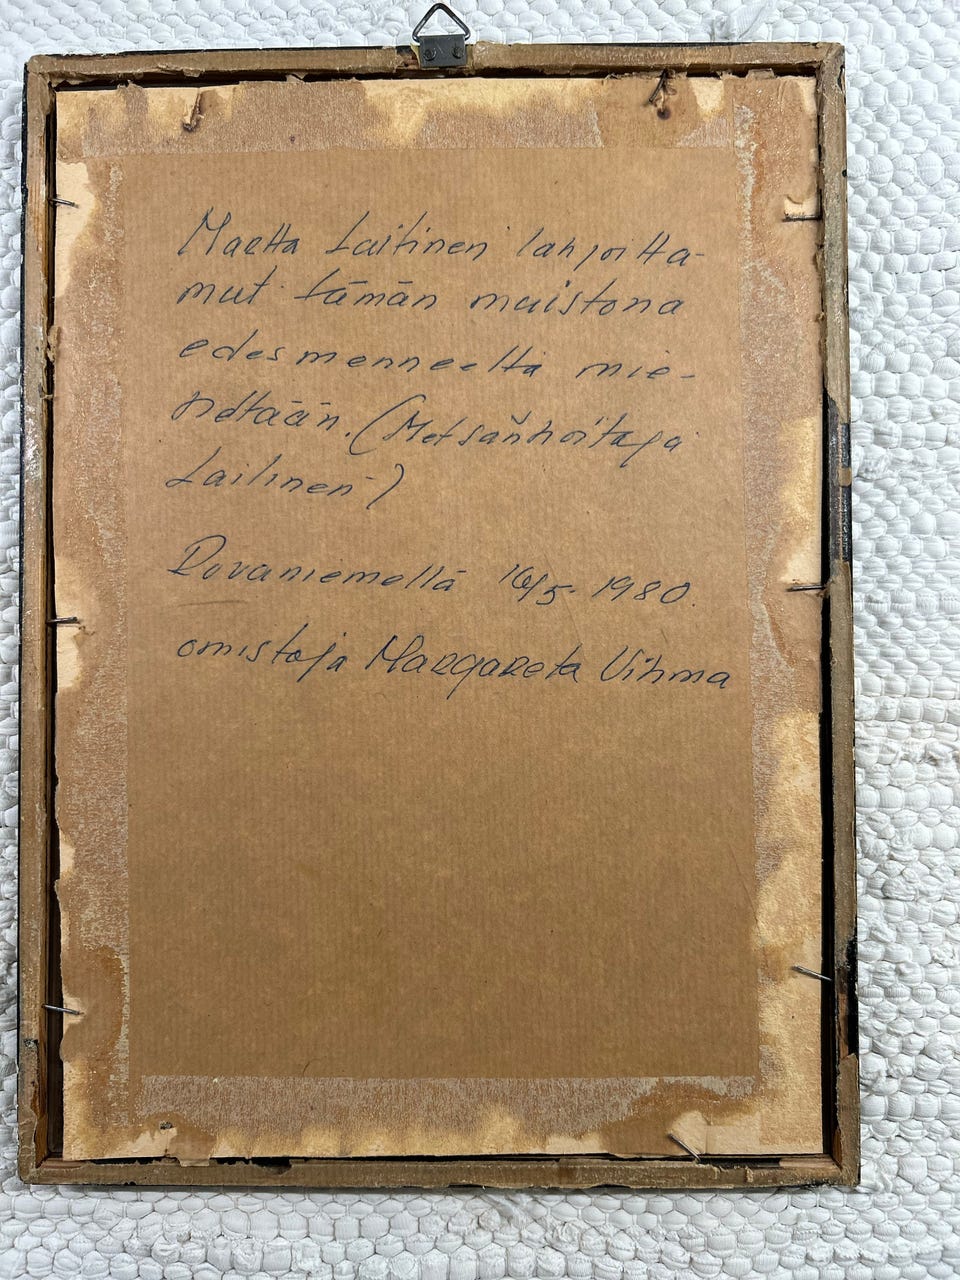 Martta Laitinen lahjoitta-
mut tämän muistona
edesmenneeltä mie-
heltään. (Metsänhoitaja
Laitinen)
Rovaniemellä 16/5- 1980.
omistaja Margareta Vihma